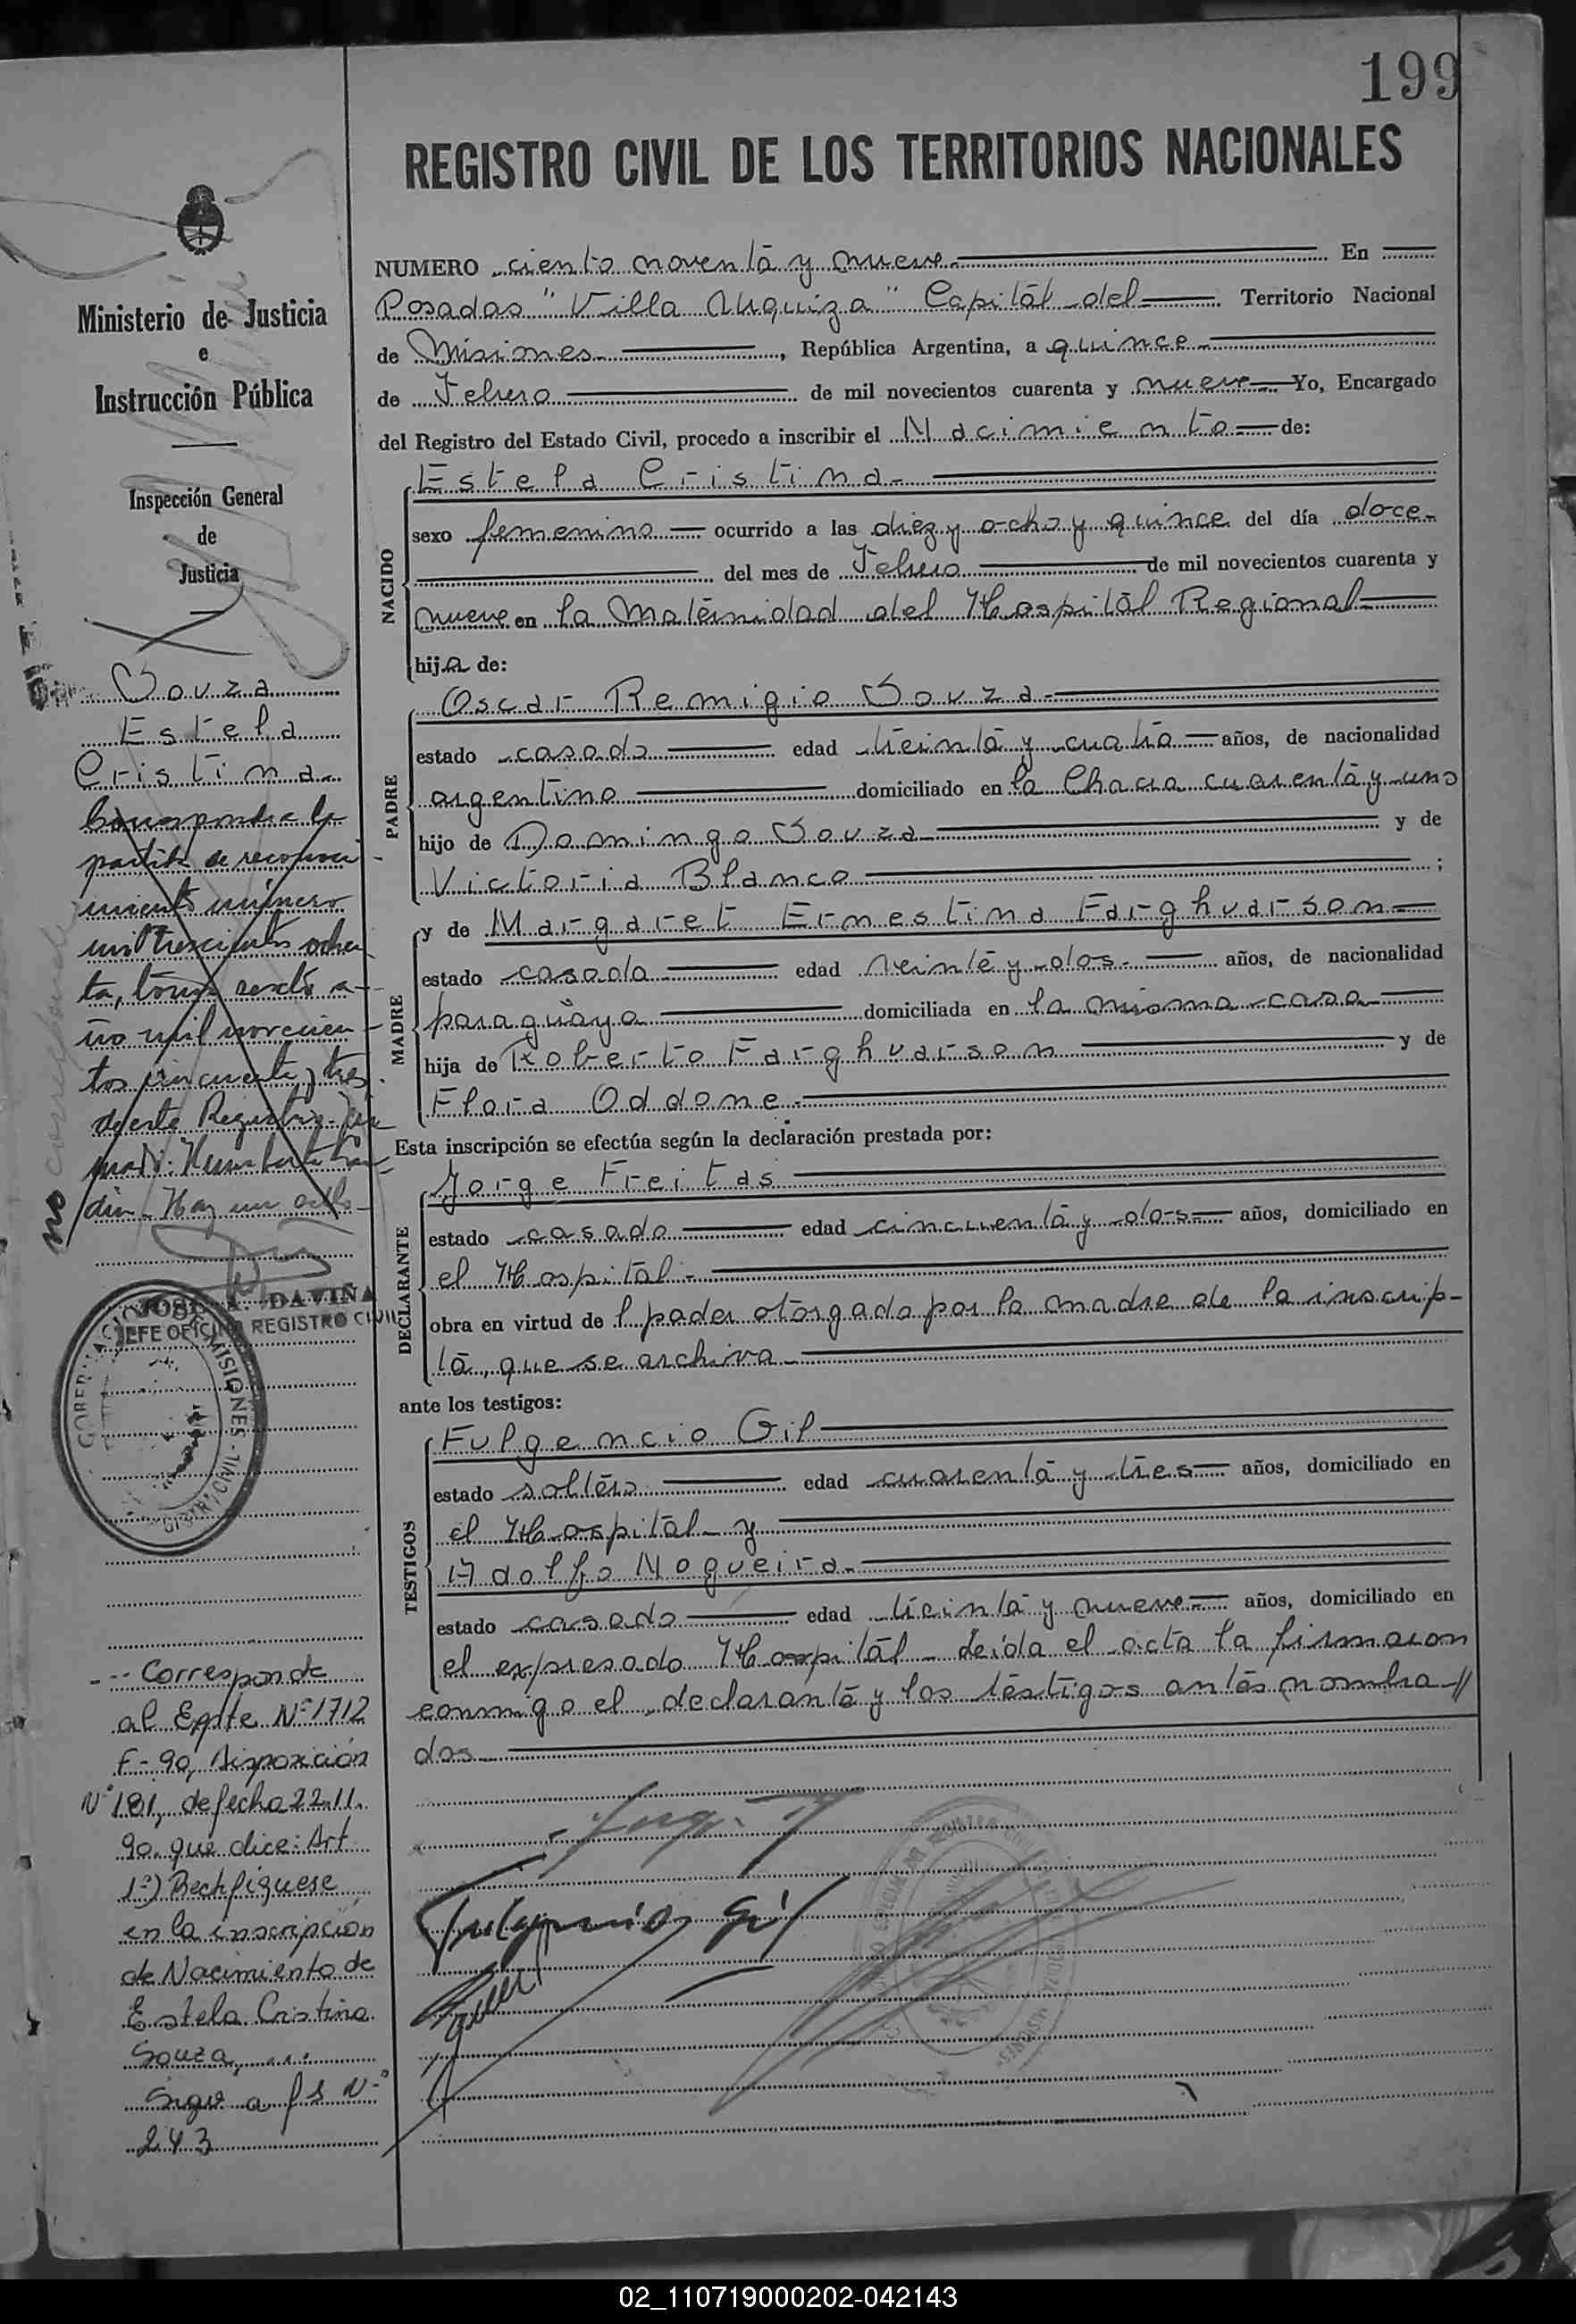 199
REGISTRO CIVIL DE LOS TERRITORIOS NACIONALES
Ministerio de Justicia
e
Instrucción Pública
Inspección General
de
Justicia
Souza
Estela
Cristina
Corresponde la
partida de reconoci-
miento número
mil trescientos ochen
ta, tomo sexto a-
ño mil novecien-
tos cincuenta y tres
de este Registro.
Hay un sello
no
JOSE A. DAVIÑA
JEFE OFICINA REGISTRO CIVIL
MISIONES
-- Corresponde
al Expte Nº 1712
F-90, Disposición
Nº 181, de fecha 22.11.
90. que dice: Art
1º) Rectifíquese
en la inscripción
de Nacimiento de
Estela Cristina
Souza, ...
Sigue a fs Nº
243
NUMERO ciento noventa y nueve.- En
Posadas "Villa Urquiza" Capital del Territorio Nacional
de Misiones, República Argentina, a quince
de Febrero de mil novecientos cuarenta y nueve Yo, Encargado
del Registro del Estado Civil, procedo a inscribir el Nacimiento de:
NACIDO
Estela Cristina-
sexo femenino ocurrido a las diez y ocho y quince del día doce-
del mes de Febrero de mil novecientos cuarenta y
nueve en la Maternidad del Hospital Regional
hija de:
PADRE
Oscar Remigio Souza-
estado casado edad treinta y cuatro años, de nacionalidad
argentino domiciliado en la Chacra cuarenta y uno
hijo de Domingo Souza y de
Victoria Blanco ;
MADRE
y de Margaret Ernestina Farghuarson
estado casada edad veinte y dos.- años, de nacionalidad
paragüaya domiciliada en la misma casa
hija de Roberto Farghuarson y de
Flora Oddone.
Esta inscripción se efectúa según la declaración prestada por:
DECLARANTE
Jorge Freitas
estado casado edad cincuenta y dos años, domiciliado en
el Hospital-
obra en virtud del poder otorgado por la madre de la inscrip-
ta, que se archiva
ante los testigos:
TESTIGOS
Fulgencio Gil
estado soltero edad cuarenta y tres años, domiciliado en
el Hospital y
Adolfo Nogueira.
estado casado edad treinta y nueve años, domiciliado en
el expresado Hospital- Leída el acta la firmaron
conmigo el declarante y los testigos antes nombra-//
dos
Fulgencio Gil
02_110719000202-042143